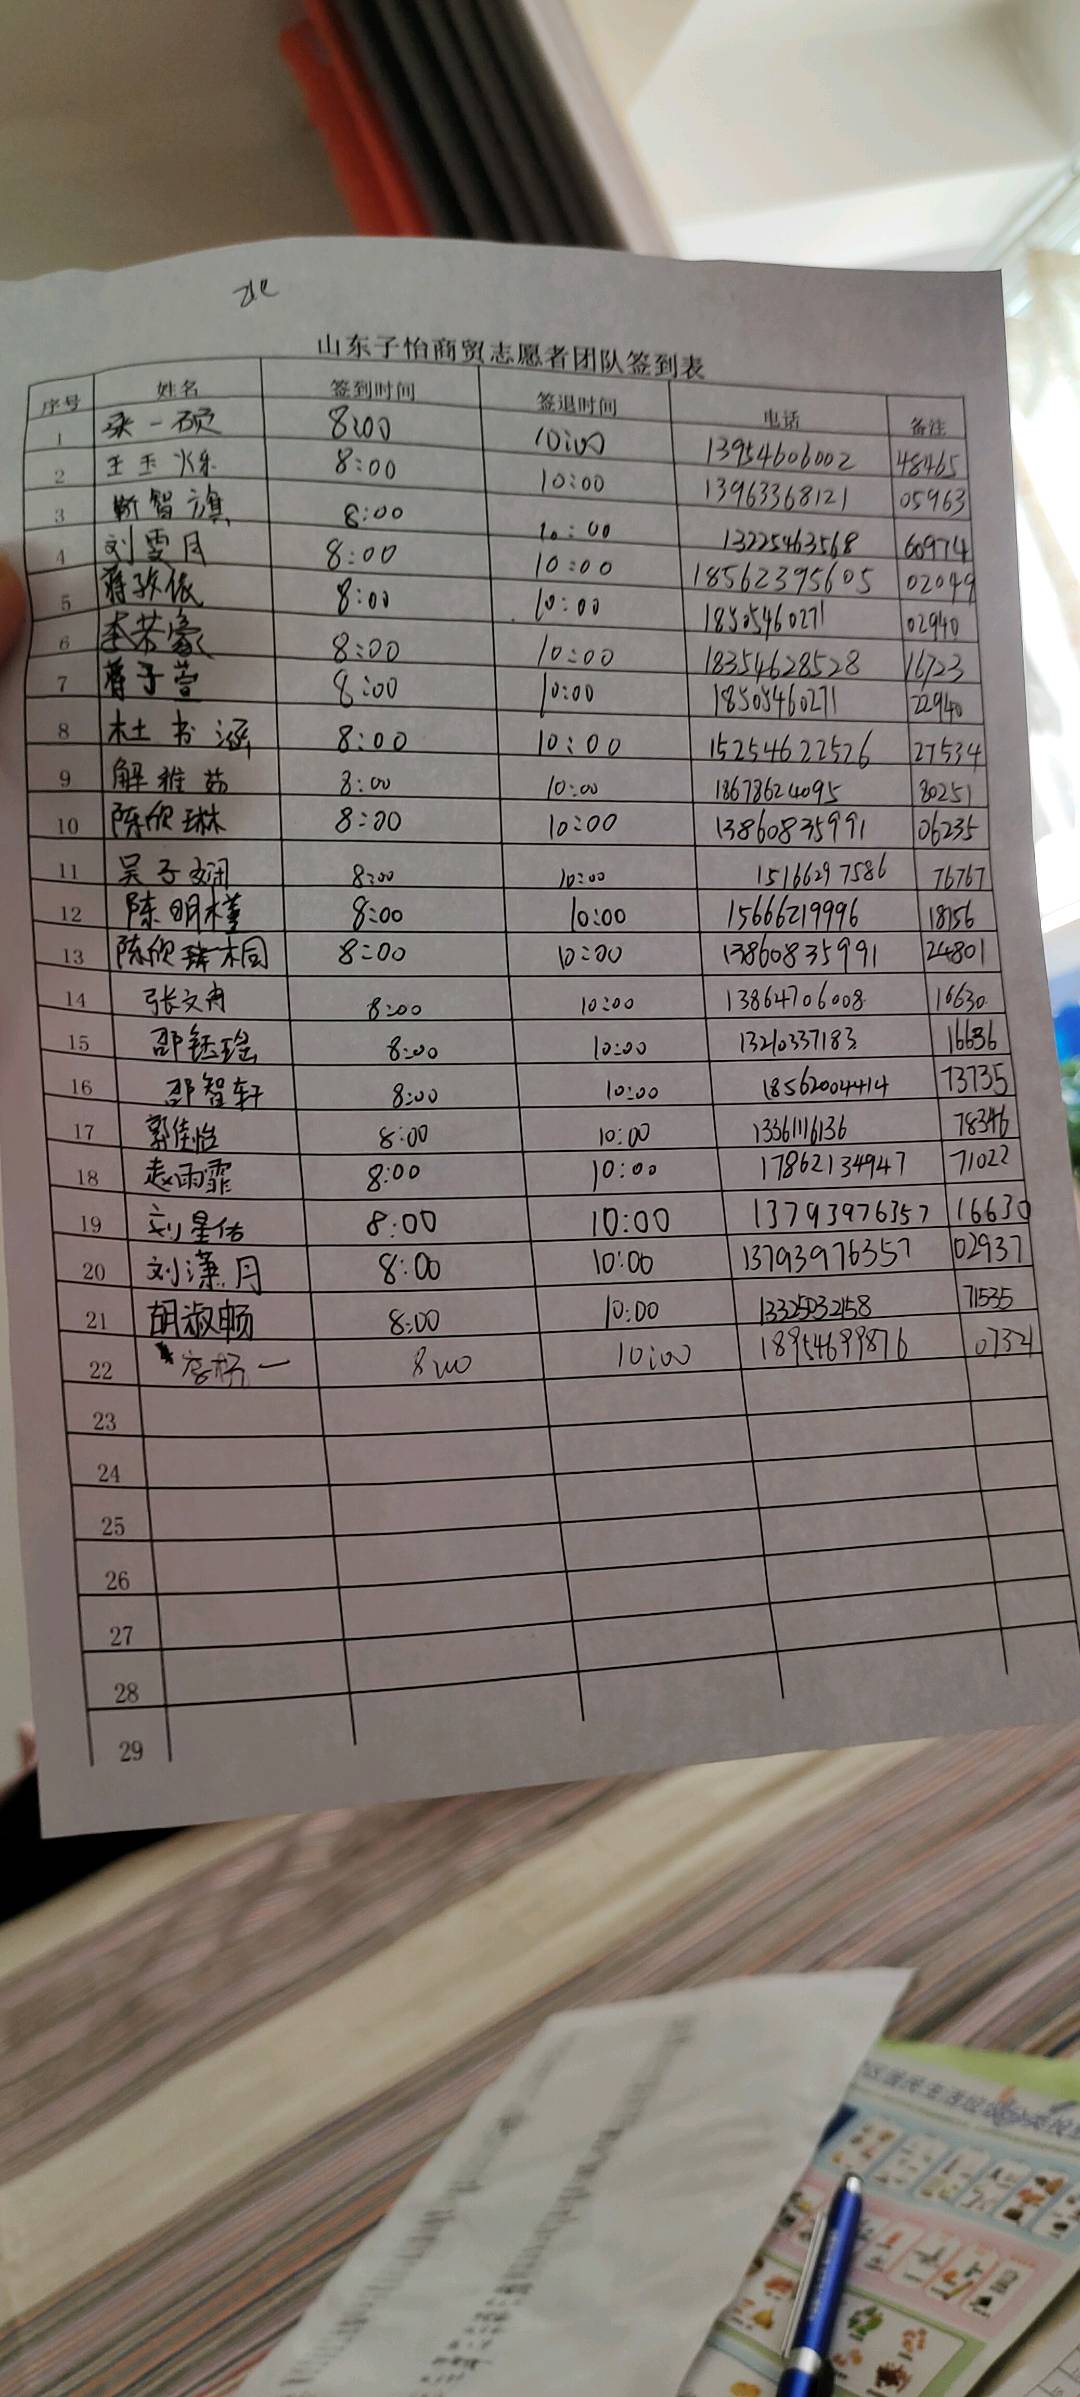 北
山东子怡商贸志愿者团队签到表
序号 姓名 签到时间 签退时间 电话 备注
1 一硕 8:00 10:00 13954606002 48465
2 王玉烁 8:00 10:00 13963368121 05963
3 靳智旗 8:00 10:00 13225463568 60974
4 刘雯月 8:00 10:00 18562395605 02049
5 蒋依 8:00 10:00 18505460271 02940
6 李若豪 8:00 10:00 18354628528 16723
7 蒋子萱 8:00 10:00 18505460271 22940
8 杜书涵 8:00 10:00 15254622526 27534
9 解雅茹 8:00 10:00 18678624095 80251
10 陈欣琳 8:00 10:00 13860835991 06235
11 吴子 8:00 10:00 15166297586 76767
12 陈明槿 8:00 10:00 15666219996 18156
13 陈欣桐 8:00 10:00 13860835991 24801
14 张文冉 8:00 10:00 13864706008 16630
15 邵钰瑶 8:00 10:00 13210337183 16636
16 邵智轩 8:00 10:00 18562004414 73735
17 郭佳怡 8:00 10:00 13361116136 78346
18 赵雨霏 8:00 10:00 17862134947 71022
19 刘星佑 8:00 10:00 13793976357 16630
20 刘潇月 8:00 10:00 13793976357 02937
21 胡淑畅 8:00 10:00 13325032158 71535
22 一 8:00 10:00 18954699876 07321
23
24
25
26
27
28
29